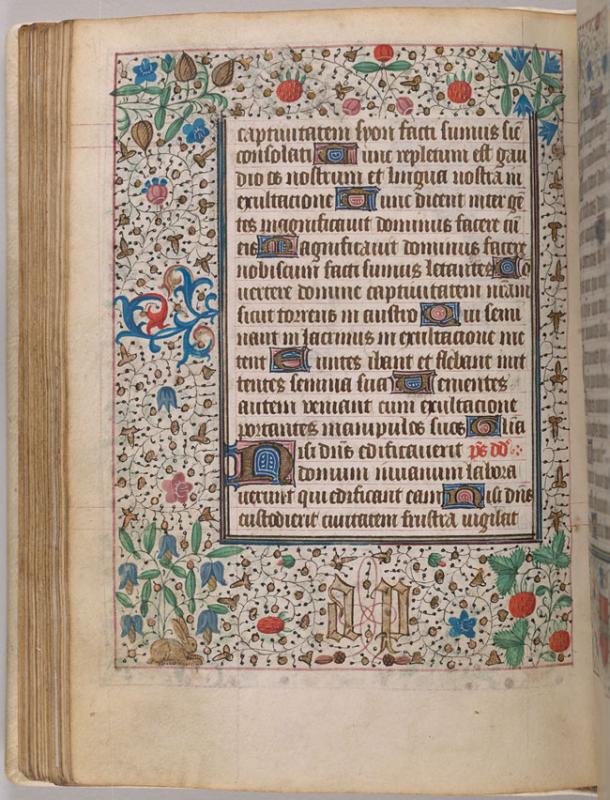 captiuitatem syon facti sumus sic
consolati Tunc repletum est gau
dio os nostrum et lingua nostra in
exultacione Tunc dicent inter gē
tes magnificauit dominus facere cū
eis Magnificauit dominus facere
nobiscum facti sumus letantes Co
uertere domine captiuitatem nr̄am
sicut torrens in austro Qui semi
nant in lacrimis in exultacione me
tent Euntes ibant et flebant mit
tentes semina sua Uenientes
autem venient cum exultacione
portantes manipulos suos Gl̄ia
Nisi dn̄s edificauerit ps̄ dd̄
domum inuanum labora
uerunt qui edificant eam Nisi dn̄s
custodierit ciuitatem frustra uigilat
a p